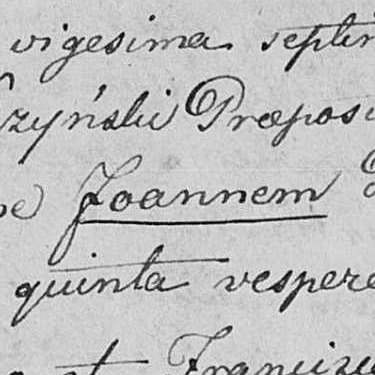 vigesima septi
zyński Præposi
Joannem
quinta vespere
et Francisc